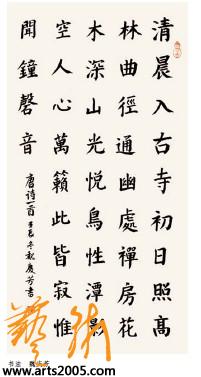 清晨入古寺初日照高
林曲徑通幽處禪房花
木深山光悅鳥性潭影
空人心萬籟此皆寂惟
聞鐘磬音
唐詩一首
藝術
www.arts2005.com